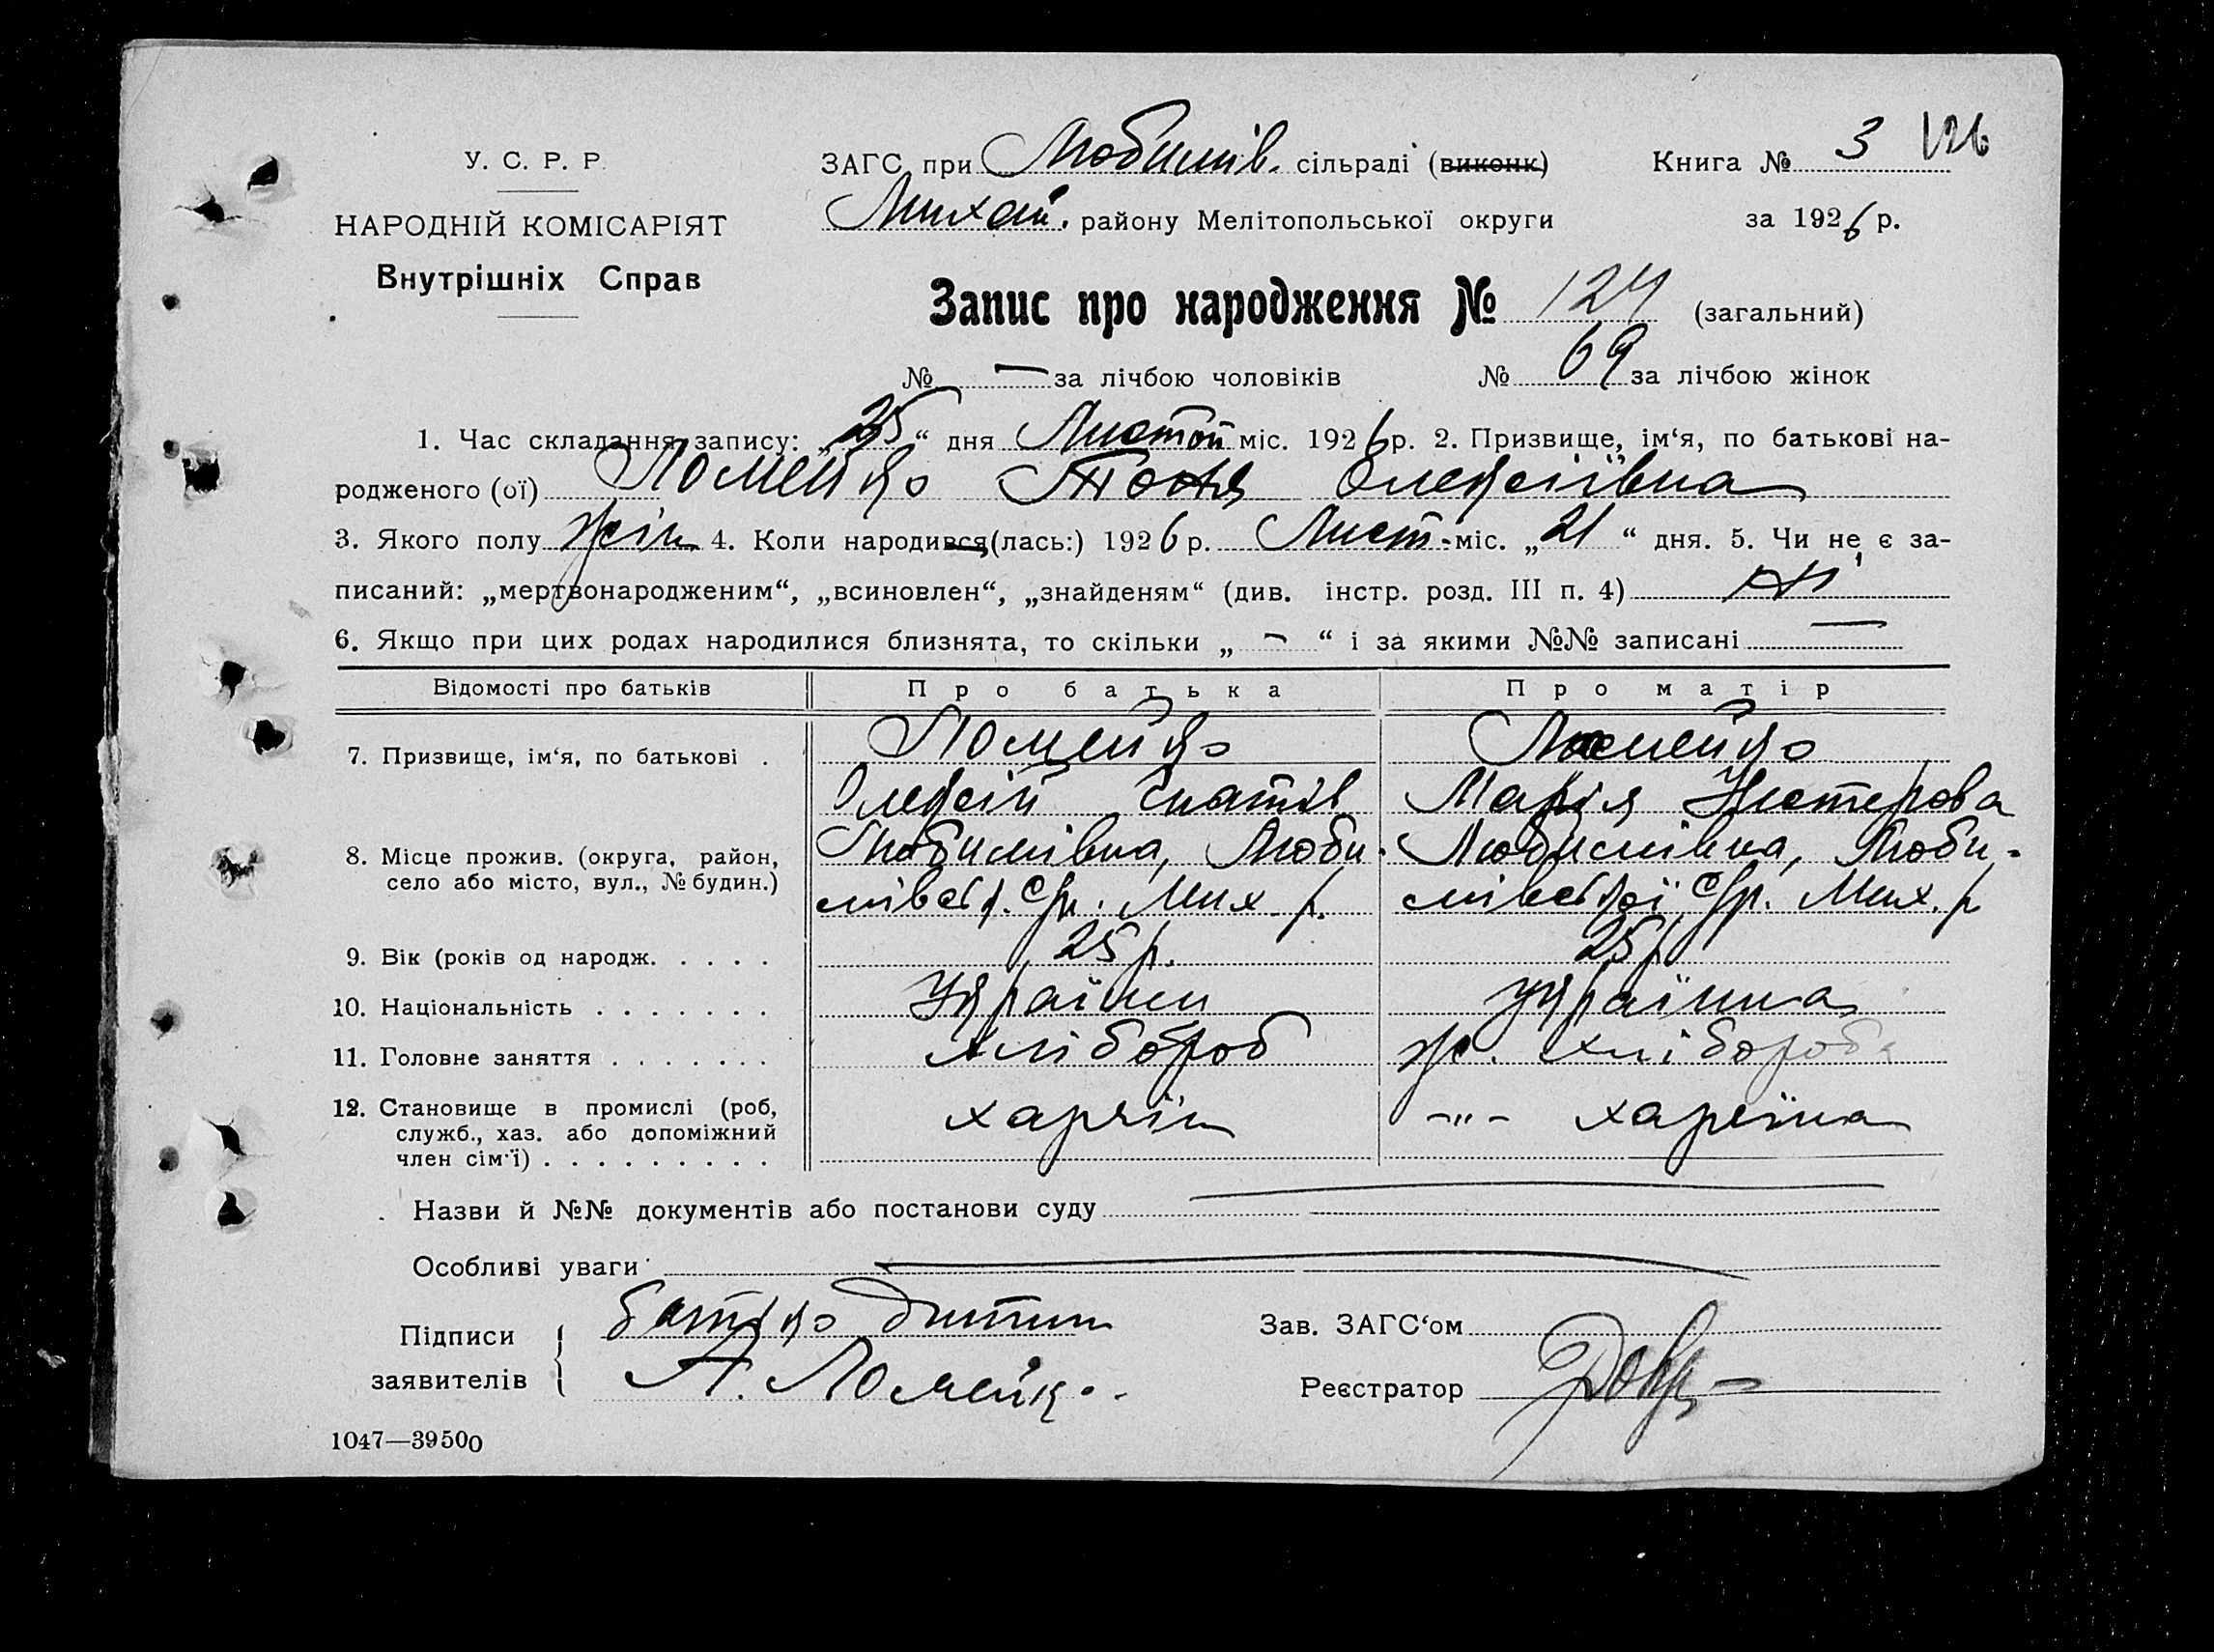 У. С. Р. Р.
НАРОДНІЙ КОМІСАРІЯТ
Внутрішніх Справ
ЗАГС при Любимів. сільраді (виконк)
Михай. району Мелітопольської округи
Книга № 3 126
за 1926 р.
Запис про народження № 124 (загальний)
№ — за лічбою чоловіків № 69 за лічбою жінок
1. Час складання запису: „25“ дня Листоп міс. 1926 р. 2. Призвище, ім‘я, по батькові на-
родженого (ої) Ломейко Тоня Олексіївна
3. Якого полу жін 4. Коли народився (лась:) 1926 р. Лист. міс. „21“ дня. 5. Чи не є за-
писаний: „мертвонародженим“, „всиновлен“, „знайденям“ (див. інстр. розд. III п. 4) ні
6. Якщо при цих родах народилися близнята, то скільки „ — “ і за якими №№ записані —
Відомості про батьків Про батька Про матір
7. Призвище, ім‘я, по батькові . Ломейко Ломейко
Олексій Гнатів Марія Нестерова
8. Місце прожив. (округа, район, Любимівка, Люби- Любимівка, Люби-
село або місто, вул., № будин.) мівськ. С/р. Мих. р. мівської С/р. Мих. р
9. Вік (років од народж. . . . . 25 р. 25 р
10. Національність . . . . . . . Українець українка
11. Головне заняття . . . . . . . хлібороб ж. хлібороба
12. Становище в промислі (роб, хазяїн -"- хазяїна
служб., хаз. або допоміжний
член сім‘ї) . . . . . . . . .
Назви й №№ документів або постанови суду
Особливі уваги
Підписи батько дитини
заявителів А. Ломейко.
Зав. ЗАГС‘ом
Реєстратор
1047—39500